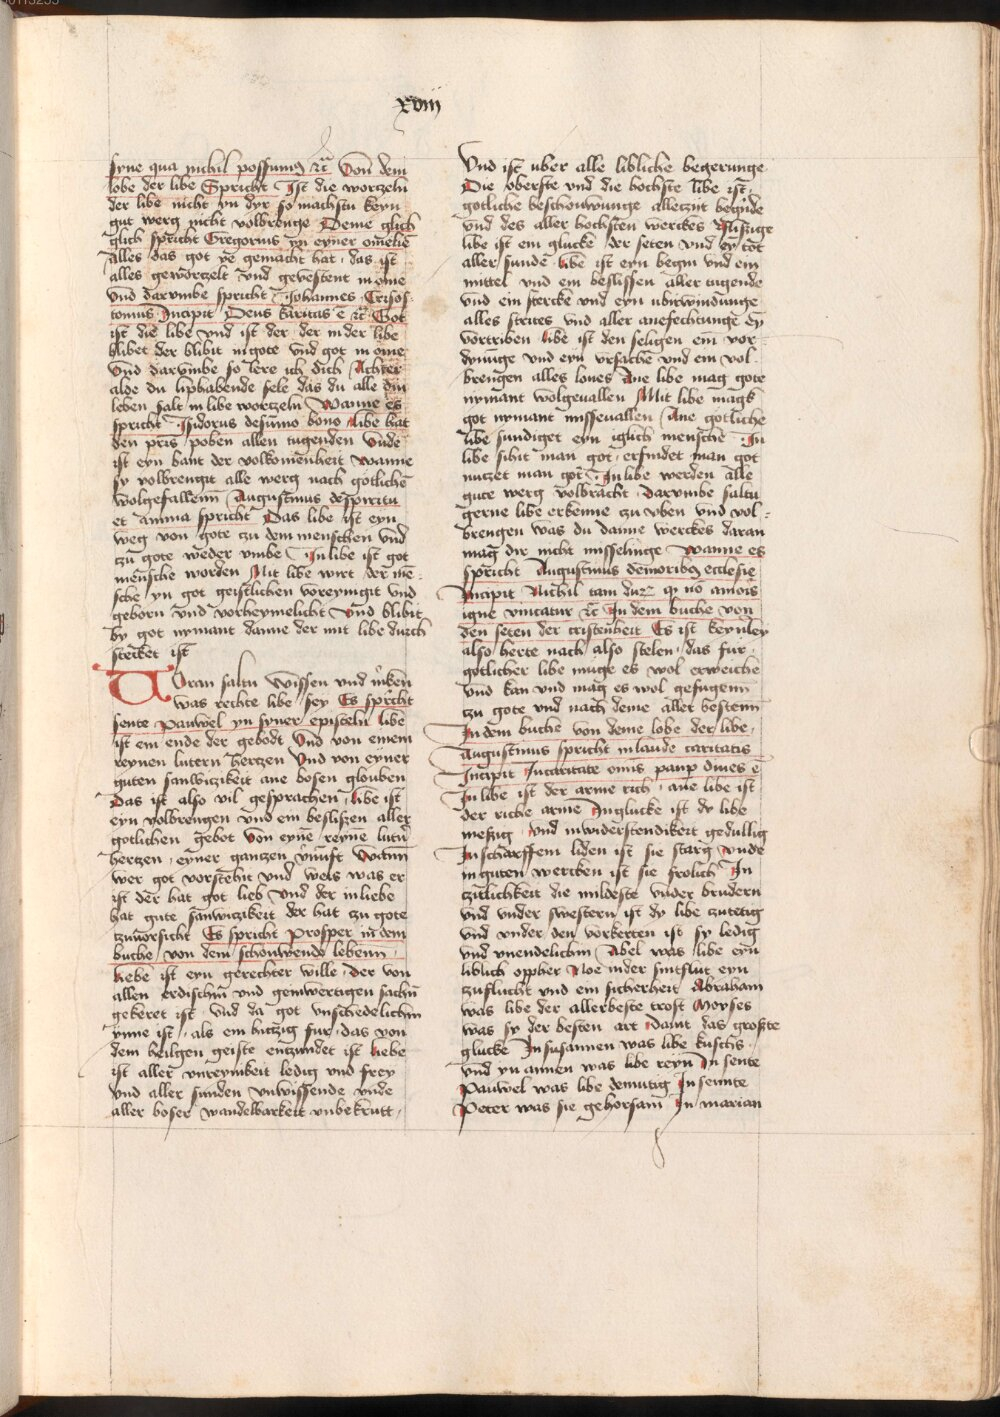 xviij
syne qua nichil possumus etc̃ Von dem
lobe der libe Spricht Ist die worczeln
der libe nicht yn dyr so machstu keyn
gut werg nicht volbrenge Deme glich
glich spricht Gregorius yn eyner omelien
Alles das got ye gemacht hat das ist
alles geworczelt vnd gevestent in ome
vnd darvmbe spricht Johannes Crisos-
tomus Incipit Deus karitas ē etc̃ Got
ist die libe vnd ist der der in der libe
blibet der blibit in gote vnd got in ome
vnd darvmbe so lere ich dich Achter
alde du liphabende sele das du alle din
leben salt in libe worczeln Wanne es
spricht Isidorus desūmo bono libe hat
den pris poben allen tugenden vnde
ist eyn bant der volkomenheit wanne
sy volbrengit alle werg nach gotlichē
wolgefallenn Augustinus de spiritu
et anima spricht Das libe ist eyn
weg von gote czu dem menschen vnd
czu gote weder vmbe In libe ist got
mensche worden Mit libe wirt der mē-
sche yn got geistlichen voreynigit vnd
geborn vnd vorheymelicht vnd blibit
by got nymant danne der mit libe durch
stecket ist
Woran saltu wissen vnd m'ken
was rechte libe sey Es spricht
sente Pauwel yn syner episteln libe
ist ein ende der gebodt vnd von einem
reynen lutern herczen vnd von eyner
guten sanwiczikeit ane bosen glouben
Das ist also vil gesprachen libe ist
eyn volbrengen vnd ein besliszen aller
gotlichen gebot von eynē reynē lutn̄
herczen eyner ganczen v'nuft Wann
wer got vorstehit vnd weis was er
ist der hat got lieb vnd der in liebe
hat gute sanwiczikeit der hat czu gote
czuuorsicht Es spricht Prosper in dem
buche von dem schouwende lebenn
Liebe ist eyn gerechter wille der von
allen erdischin vnd geinwertigen sachn̄
gekeret ist vnd da got vnschedelichin
ynne ist als ein hiczig fur das von
dem heilgen geiste enczundet ist Liebe
ist aller vnreynikeit ledig vnd frey
vnd aller sunden vnwissende vnde
aller boser wandelbarkeit vnbekrutt
Vnd ist uber alle libliche begerunge
Die oberste vnd die hochste libe ist
gotliche beschouwunge alleczut begirde
vnd des aller hochsten werckes Flissige
libe ist ein glucke der seten vnd ey tot
aller sunde libe ist eyn begin vnd ein
mittel vnd ein beslissen aller tugende
vnd ein stercke vnd eyn ubirwindunge
alles strites vnd aller anefechtunge ey
vortriben libe ist den seligen ein vor-
dynūge vnd eyn vrsachen vnd ein vol-
brengen alles lones Ane libe mag gote
nymant wolgeuallen Mit libe magk
got nymant misseuallen Ane gotliche
libe sundiget eyn iglich mensche In
libe sihit man got erfindet man got
nuczet man got In libe werden alle
gute werg volbracht darvmbe saltu
gerne libe erkenne czu vben vnd vol-
brengen was du danne werckes daran
mag dir nicht misselinge wanne es
spricht Augustinus demoribus ecclesie
Incipit Nichil tam dur̃ qͥ nō amoris
igne vincatur etc̃ In dem buche von
den seten der cristenheit Es ist keynley
also herte nach also stelen das fur
gotlicher libe muge es wol erweichē
vnd kan vnd mag es wol gefugenn
czu gote vnd nach deme aller bestenn
In dem buche von deme lobe der libe
Augustinus spricht in laude caritatis
Incipit Incaritate omīs paup diues ē
In libe ist der arme rich ane libe ist
der riche arme In glucke ist dy libe
messig vnd in widerstendikeit gedullig
In scharffem liden ist sie starg vnde
in guten wercken ist sie frolich In
czitlichkeit die mildeste vnder brudern
vnd vnder swestern ist dy libe czutetig
vnd vnder den vorkerten ist sy ledig
vnd vnendelichin Abel was libe eyn
liblich oppher Noe in der sintflut eyn
czuflucht vnd ein sicherheit Abraham
was libe der allerbeste trost Moyses
was sy der besten art Dauit das groste
glucke In susannen was libe kuschs
vnd yn annen was libe reyn In sente
Pauwel was libe demutig In sennte
Peter was sie gehorsam In marian